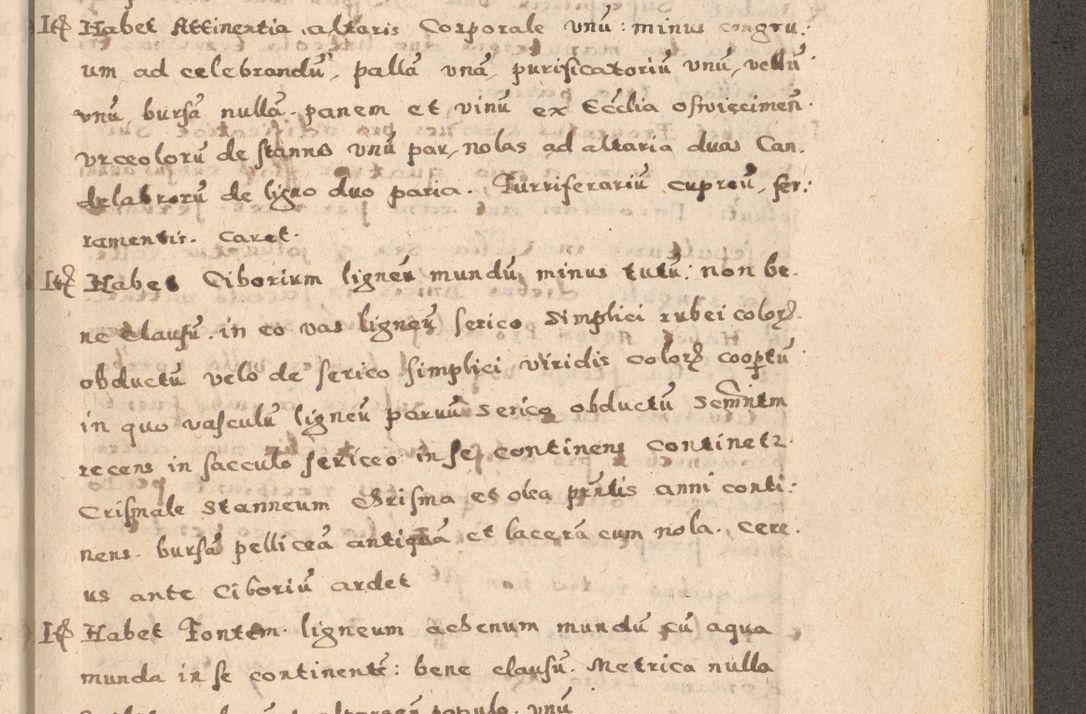 Itẽ Habet Attinentia altaris Corporale vnũ: minus congru:
um ad celebrandũ, pallã vnã, purificatoriũ vnũ, vellũ
vnũ, bursã nullã. panem et vinũ ex Ecclia osviecimeñ.
vrceolorũ de stanno vnũ par, nolas ad altaria duas Can.
delabrorũ de ligno duo paria. Turriferariũ cupreũ, fer:
ramentis. Caret.
Itẽ Habet Ciborium ligneũ mundũ, minus tutũ: non be.
ne clausũ. in eo vas ligneũ serico simplici rubei coloꝝ.
obductũ velo de serico simplici viridis coloꝝ coop̃tũ
in quo vasculũ ligneũ paruũ serico obductũ Scm̃ntm
recens in sacculo sericeo in se continens continetr.
Crismale stanneum Chrisma et olea p̃ntis anni conti:
nens. bursã pelliceã antiquã et lacerã cum nola. Cere.
us ante Ciboriũ ardet
Itẽ Habet Fontem ligneum achenum mundũ cũ aqua
munda in se continentẽ: bene clausũ. Metrica nulla
vnũ